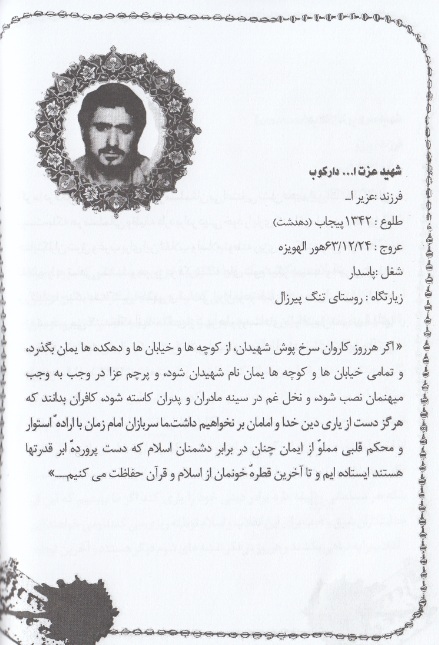 شهید عزت ا... دارکوب
فرزند :عزیر ا...
طلوع : ۱۳۴۲ پیچاب (دهدشت)
عروج : ۶۳/۱۲/۲۴هور الهویزه
شغل :پاسدار
زیارتگاه : روستای تنگ پیرزال
« اگر هرروز کاروان سرخ پوش شهیدان، از کوچه ها و خیابان ها و دهکده ها یمان بگذرد،
و تمامی خیابان ها و کوچه ها یمان نام شهیدان شود، و پرچم عزا در وجب به وجب
میهنمان نصب شود، و نخل غم در سینه مادران و پدران کاسته شود، کافران بدانند که
هرگز دست از یاری دین خدا و امامان بر نخواهیم داشت.ما سربازان امام زمان با ارادهٔ استوار
و محکم قلبی مملوّ از ایمان چنان در برابر دشمنان اسلام که دست پروردهٔ ابر قدرتها
هستند ایستاده ایم و تا آخرین قطرهٔ خونمان از اسلام و قرآن حفاظت می کنیم....»